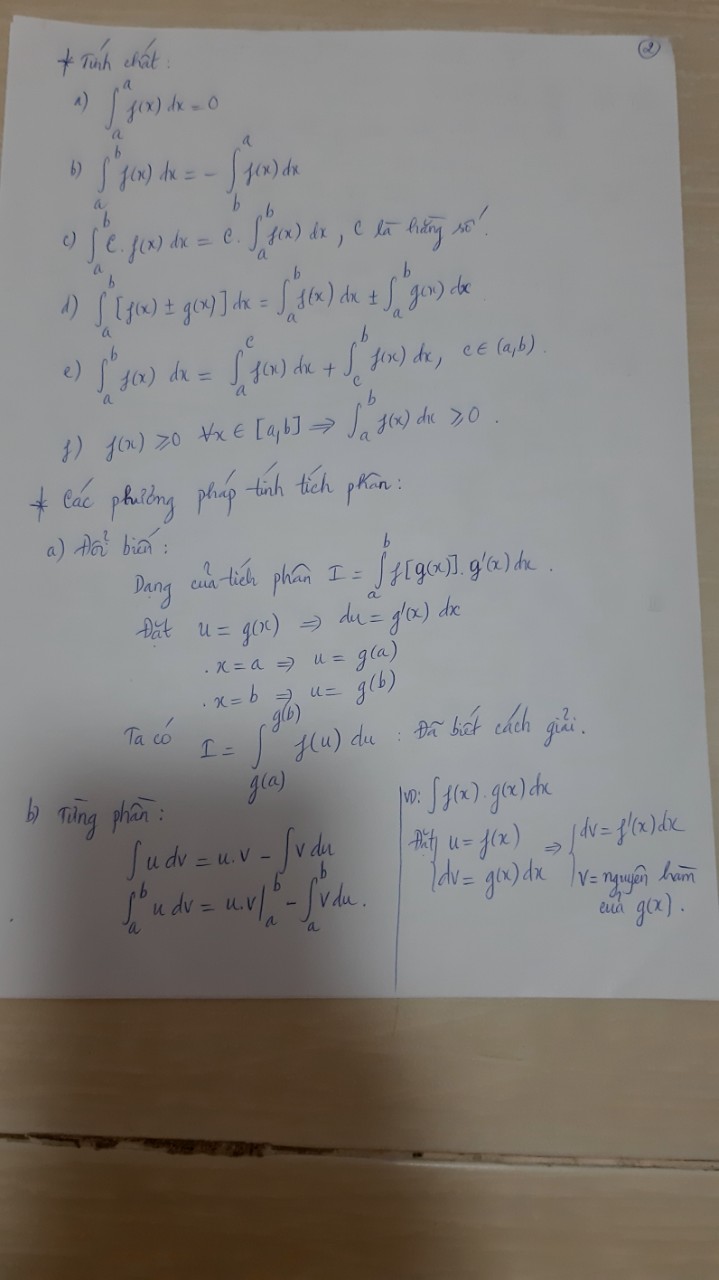 ②
* Tính chất:
a) ∫_a^a f(x) dx = 0
b) ∫_a^b f(x) dx = - ∫_b^a f(x) dx
c) ∫_a^b C. f(x) dx = C. ∫_a^b f(x) dx, C là hằng số.
d) ∫_a^b [f(x) ± g(x)] dx = ∫_a^b f(x) dx ± ∫_a^b g(x) dx
e) ∫_a^b f(x) dx = ∫_a^c f(x) dx + ∫_c^b f(x) dx, c ∈ (a,b).
f) f(x) ≥ 0 ∀x ∈ [a,b] ⇒ ∫_a^b f(x) dx ≥ 0.
* Các phương pháp tính tích phân:
a) Đổi biến:
Dạng của tích phân I = ∫_a^b f[g(x)]. g'(x) dx.
Đặt u = g(x) ⇒ du = g'(x) dx
. x = a ⇒ u = g(a)
. x = b ⇒ u = g(b)
Ta có I = ∫_{g(a)}^{g(b)} f(u) du : Đã biết cách giải.
b) Từng phần:
∫ u dv = u.v - ∫ v du
∫_a^b u dv = u.v |_a^b - ∫_a^b v du.
VD: ∫ f(x). g(x) dx
Đặt { u = f(x) ⇒ { dv = f'(x) dx
{ dv = g(x) dx { v = nguyên hàm
của g(x).